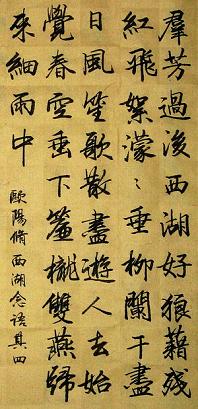 羣芳過後西湖好狼藉残
紅飛絮濛〻垂柳闌干盡
日風笙歌散盡遊人去始
覺春空垂下簾櫳雙燕歸
來細雨中
歐陽脩西湖念語其四